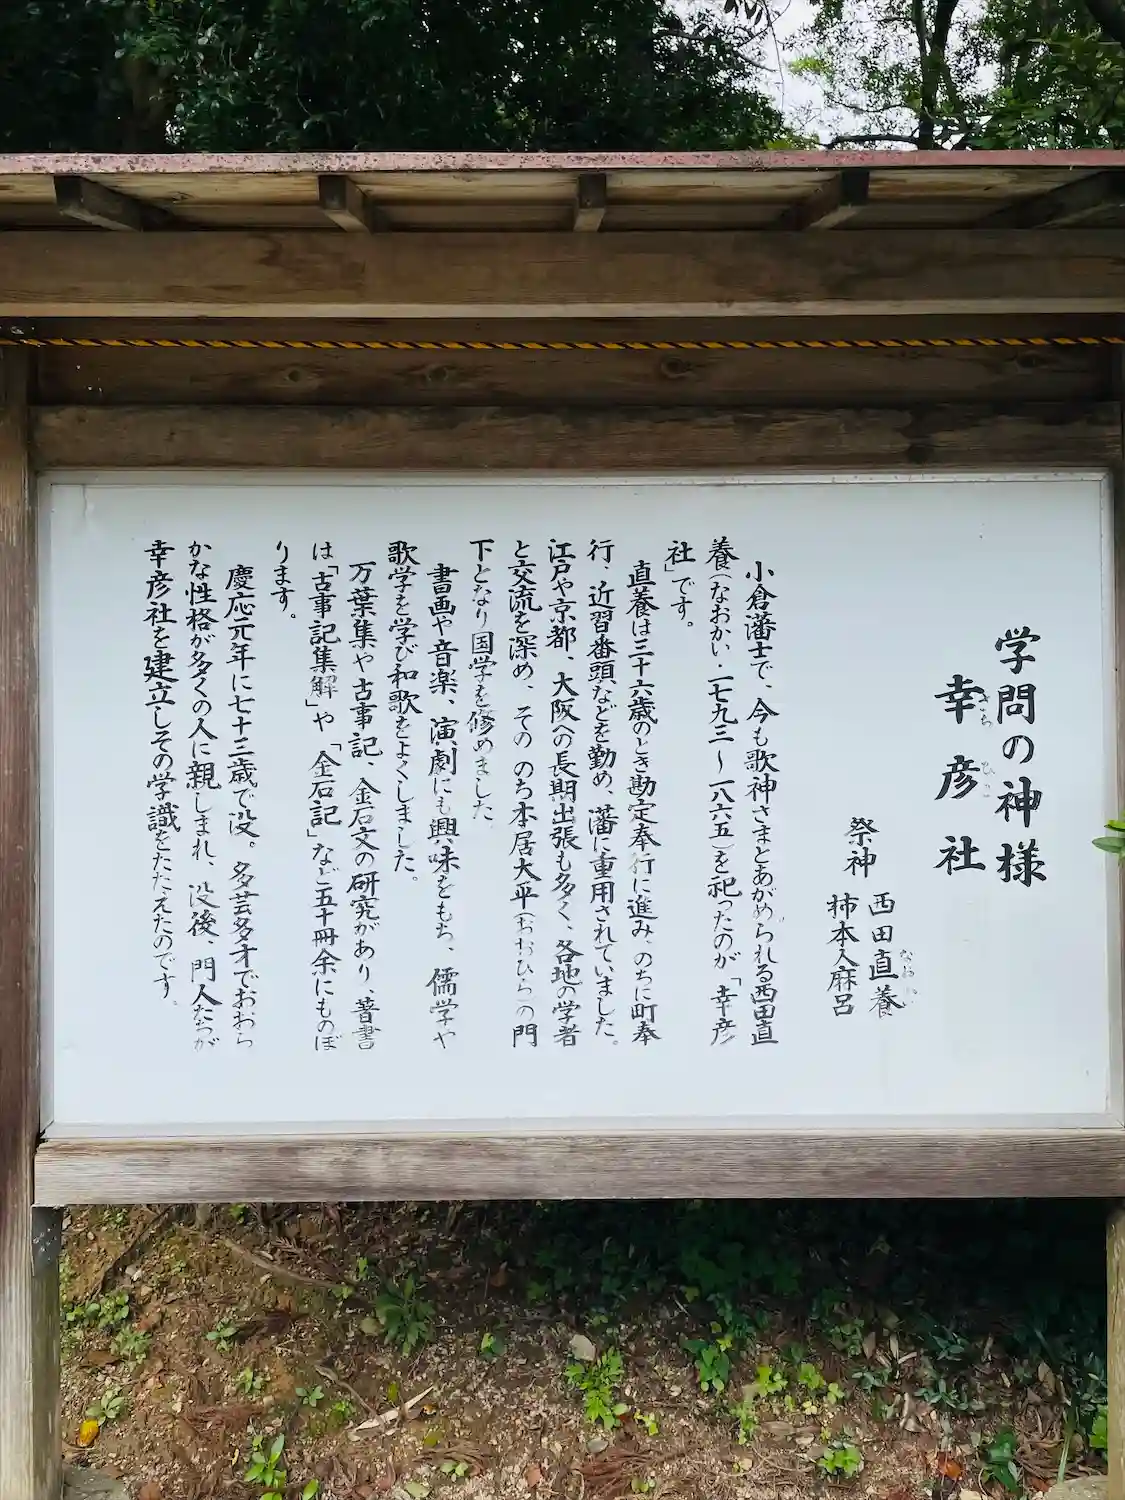 学問の神様
幸彦社
さちひこ
祭神 西田直養
柿本人麻呂
小倉藩士で、今も歌神さまとあがめられる西田直
養(なおかい・一七九三〜一八六五)を祀ったのが「幸彦
社」です。
直養は三十六歳のとき勘定奉行に進み、のちに町奉
行、近習番頭などを勤め、藩に重用されていました。
江戸や京都、大阪への長期出張も多く、各地の学者
と交流を深め、その のち本居大平(おおひら)の門
下となり国学を修めました。
書画や音楽、演劇にも興味をもち、儒学や
歌学を学び和歌をよくしました。
万葉集や古事記、金石文の研究があり、著書
は「古事記集解」や「金石記」など五十冊余にものぼ
ります。
慶応元年に七十三歳で没。多芸多才でおおら
かな性格が多くの人に親しまれ、没後、門人たちが
幸彦社を建立しその学識をたたえたのです。